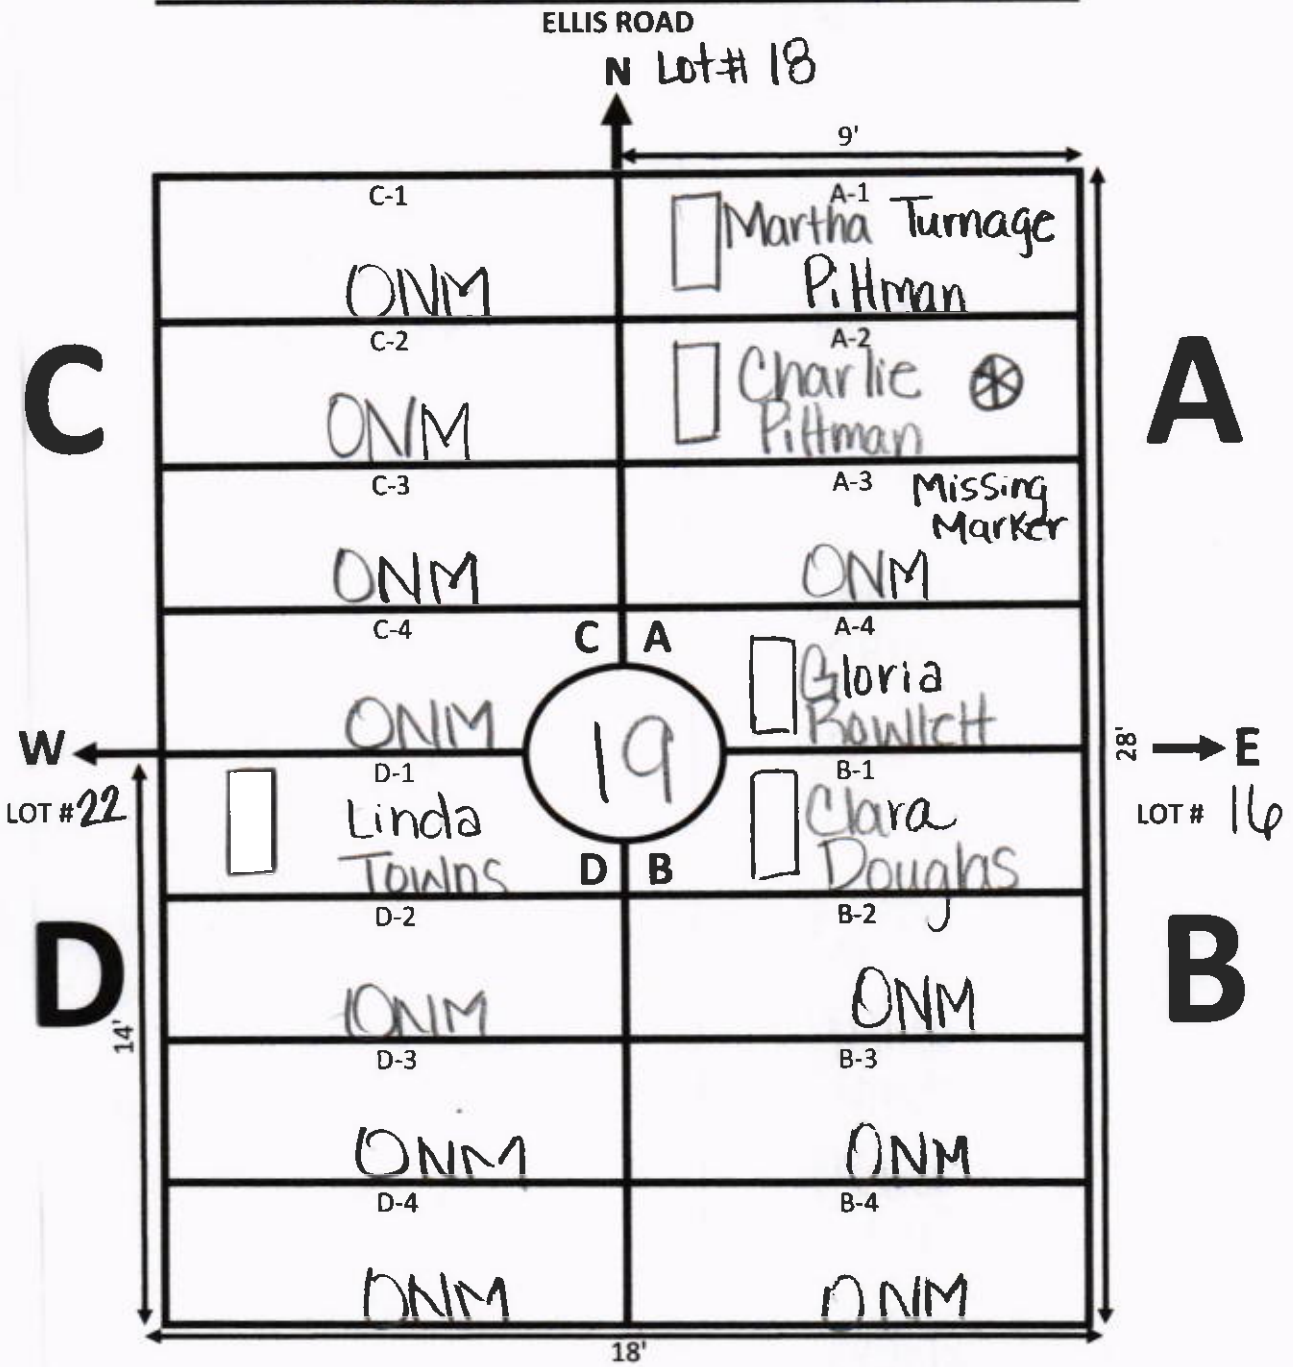 ELLIS ROAD
N Lot# 18
9'
C-1
ONM
A-1
Martha Turnage
Pittman
C-2
ONM
A-2
Charlie
Pittman
C
A
C-3
ONM
A-3 Missing
Marker
ONM
C-4
ONM
C A
A-4
Gloria
Rowlett
W
19
28'
E
LOT #22
LOT # 16
D-1
Linda
Towns
D B
B-1
Clara
Douglas
D-2
ONM
B-2
ONM
D
B
14'
D-3
ONM
B-3
ONM
D-4
ONM
B-4
ONM
18'